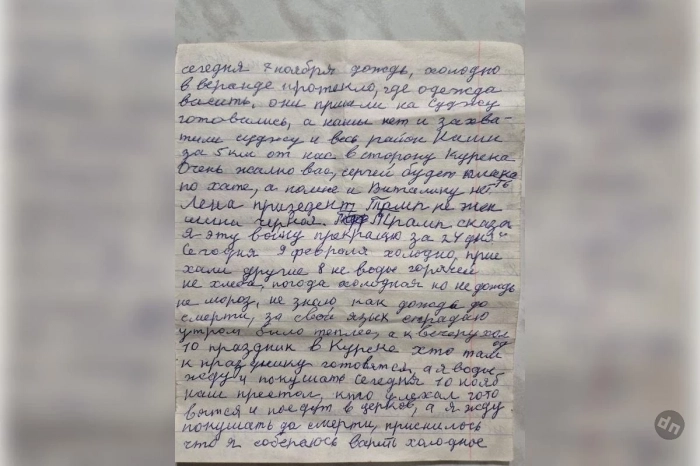 сегодня 7 ноября дождь, холодно
в веранде протекло, где одежда
васить, они пришли на суджу
готовились, а наши нет и захва-
тили суджу и весь район Наши
за 5 км от нас в сторону Курска
Очень жално вас, сергей будет
по хате, а по мне и Виталику но
Лена призедент Трамп не жен
шина черная. Трамп сказа
Я эту войну прекращю за 24 дня"
Сегодня 9 февроля холодно, прие
хали другие 8 не воды горячей
не хлеба, погода холодная но не дождь
не мороз, не знаю как дождь до
смерти, за свой язык страдаю
утром было теплее, а к вечеру хол
од
10 праздник в Курске хто там
к празднику готовятся, а я воды
жду и покушать Сегодня 10 нояб
наш престол, кто уехал гото
вытся и поедут в церков, а я жду
покушать до смерти, приснилось
что я собераюсь варить холодное
dn